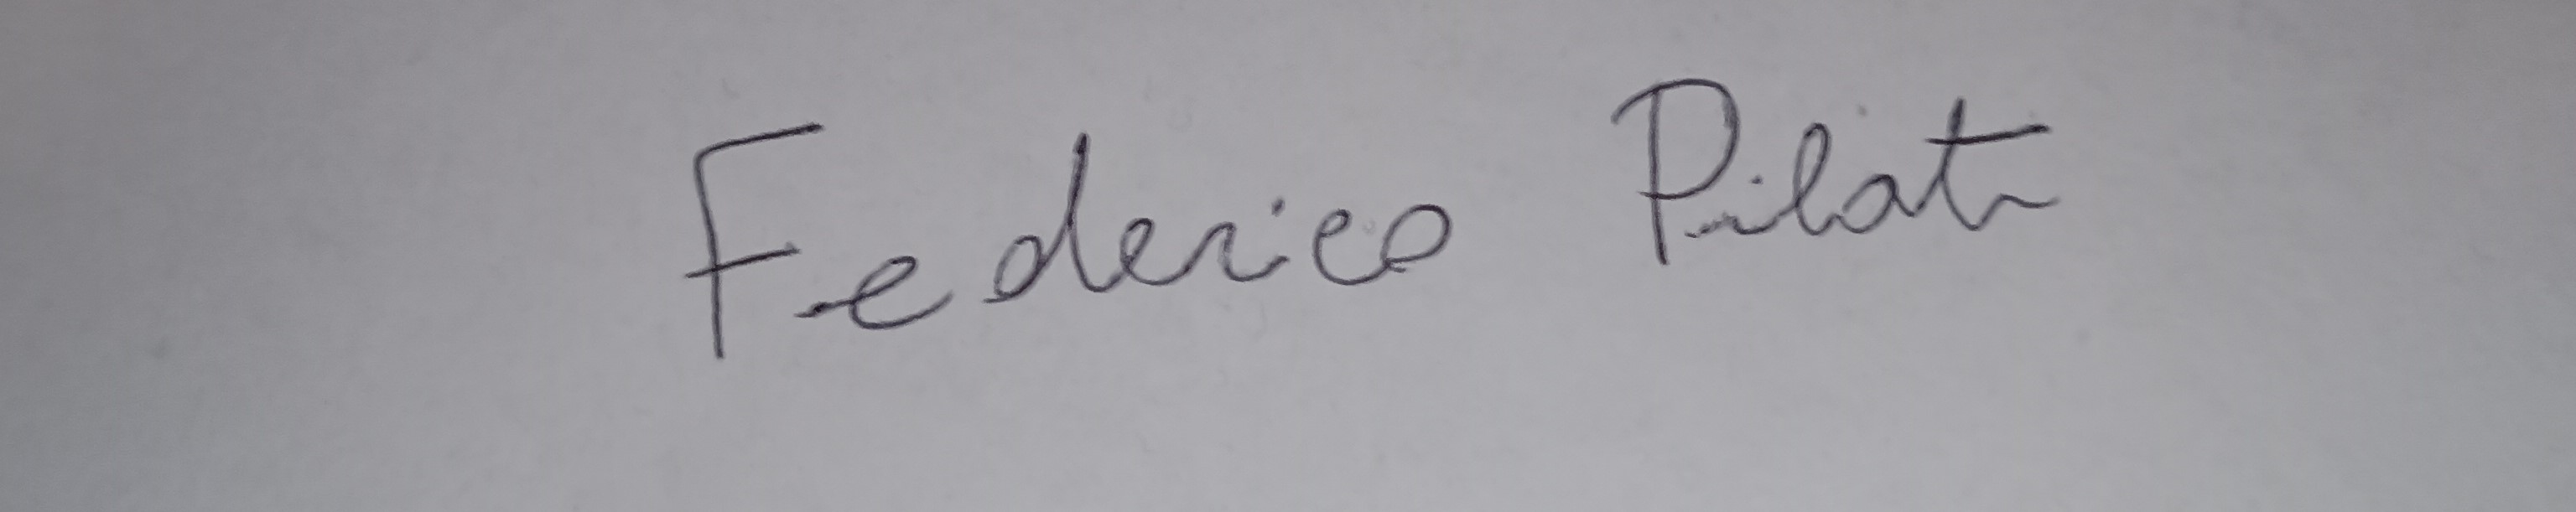 Federico Pilati